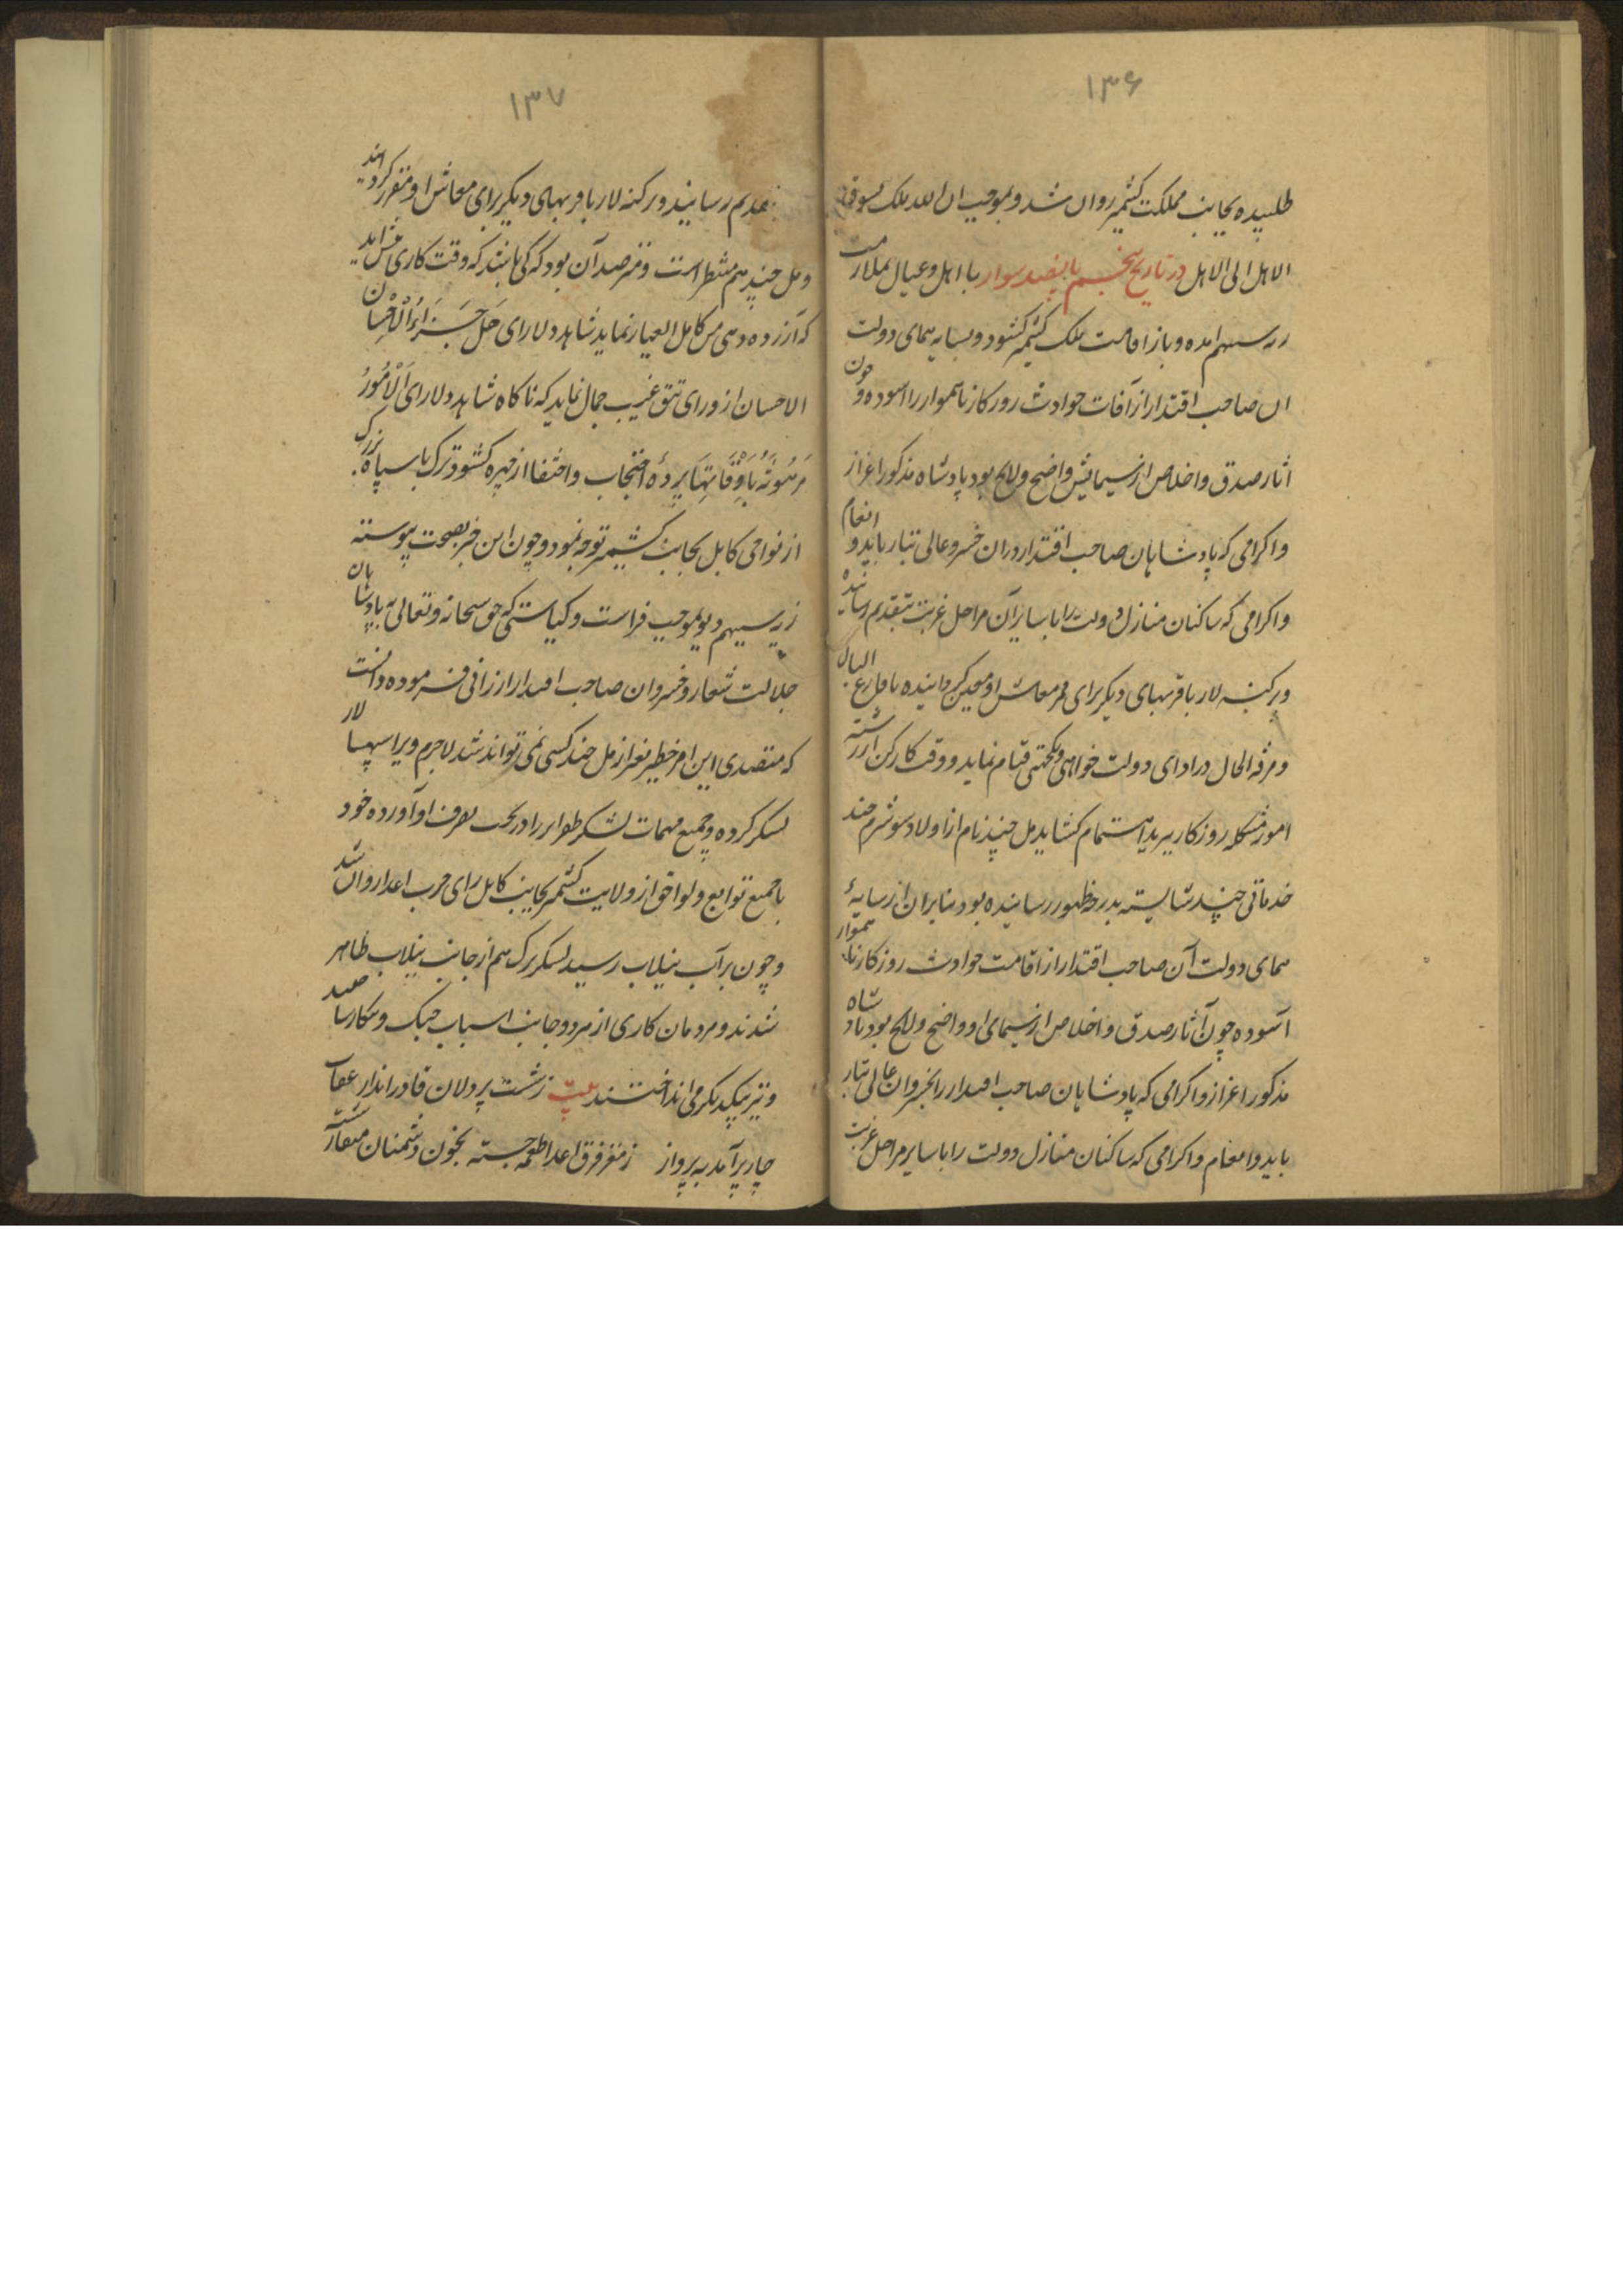 ۱۳۶
طلبیده بجانب مملکت کشمیر روان شد و بموجب ان الله ملک یسوق
الاهل الی الاهل در تاریخ پنجم با پنصد سوار با اهل و عیال بملازمت
رنه سیهم امده و باز اقامت ملک کشمیر کشود و بسایه همای دولت
ان صاحب اقتدار از آفات حوادث روزکار ناهموار را اسوده و چون
اثار صدق و اخلاص از سیمایش واضح و لایح بود پادشاه مذکور اعزاز
و اکرامی که پادشاهان صاحب اقتدار و ران خسرو عالی تبار باید و انعام
و اکرامی که ساکنان منازل دولت را با سایران مراحل غربت بتقدیم رسانیده
و پرکنه لار با قریهای دیکر برای مر معاش او معین کردانیده تا فارغ البال
و مرفه الحال در ادای دولت خواهی و یکجهتی قیام نماید و وقت کار کن از رشته
امور مشکله روزکار بید اهتمام کشاید مل چند نام از اولاد سوشرم چند
خدماتی چند شایسته بدرجه ظهور رسانیده بود بنابران از سایهٔ
همای دولت آن صاحب اقتدار از اقامت حوادث روزکار ناهموار
آسوده چون آثار صدق و اخلاص از سیمای او واضح و لایح بود پادشاه
مذکور اعزاز و اکرامی که پادشاهان صاحب اقتدار را بخسروان عالی تبار
باید و انعام و اکرامی که ساکنان منازل دولت را با سایر مراحل غربت
۱۳۷
بتقدیم رسانیند و رکنه لار با قریهای دیکر برای معاش او مقرر کردانید
و مل چند هم منتظر است و مترصد آن بود که کی باشد که وقت کاری پیش اید
که آنزده دهی مس کامل العیار نماید شاهد دلارای هَل جَزَاءُ الْاِحْسَان
الا الاحسان از ورای تتق غیب جمال نماید که ناکاه شاهد دلارای اَلْاُمُورُ
مَرْهُونَةٌ بِاَوْقَاتِهَا پردهٔ احتجاب و اختفا از چهره کشود ترک با سپاه بزرک
از نواحی کابل بجانب کشمیر توجه نمود و چون این خبر بصحت پیوسته
رنه سیهم دیو بموجب فراست و کیاستی که حق سبحانه و تعالی به پادشاهان
جلالت شعار و خسروان صاحب اقتدار ارزانی فرموده دانست
که متصدی این امر خطیر بغیر از مل چند کسی نمی تواند شد لاجرم ویرا سپهسالار
لشکر کرده و جمیع مهمات لشکر ظفر اثر را در تحت تصرف او آورده خود
با جمیع توابع و لواحق از ولایت کشمیر بجانب کابل برای حرب اعدا روان شد
و چون بر آب نیلاب رسید لشکر ترک هم از جانب نیلاب ظاهر
شدند و مردمان کاری از هر دو جانب اسباب جنک و پیکار ساخته
و تیر بیکدیکر می انداختند بیت ز شست پر دلان قادر انداز عقاب
چار پر آمد به پرواز ز مغز فرق اعدا طعمه جسته بخون دشمنان منقار شسته